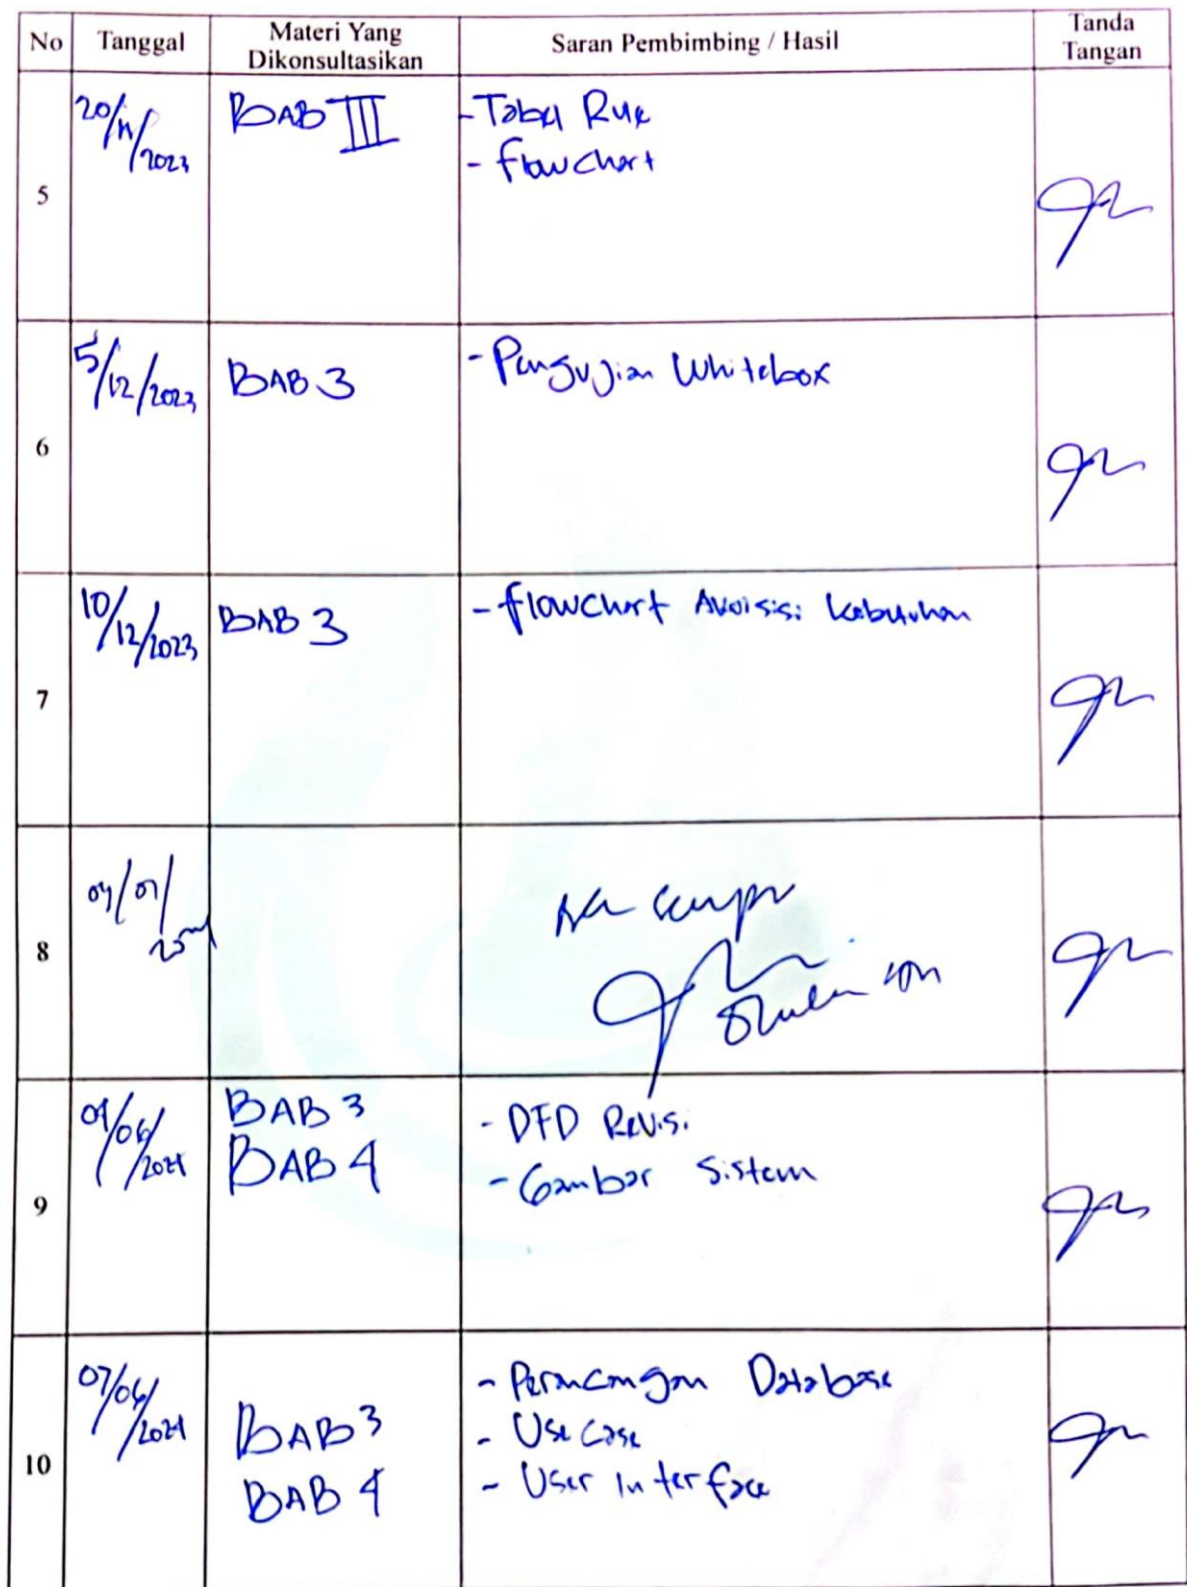 No Tanggal Materi Yang Dikonsultasikan Saran Pembimbing / Hasil Tanda Tangan
5 20/11/2023 BAB III - Tabel Rule
- flowchart
6 5/12/2023 BAB 3 - Pengujian Whitebox
7 10/12/2023 BAB 3 - flowchart kebutuhan
8
9 BAB 3 - DFD Revisi
/06/2024 BAB 4 - Gambar Sistem
10 07/06/2024 - Perancangan Database
BAB 3 - Use Case
BAB 4 - User Interface